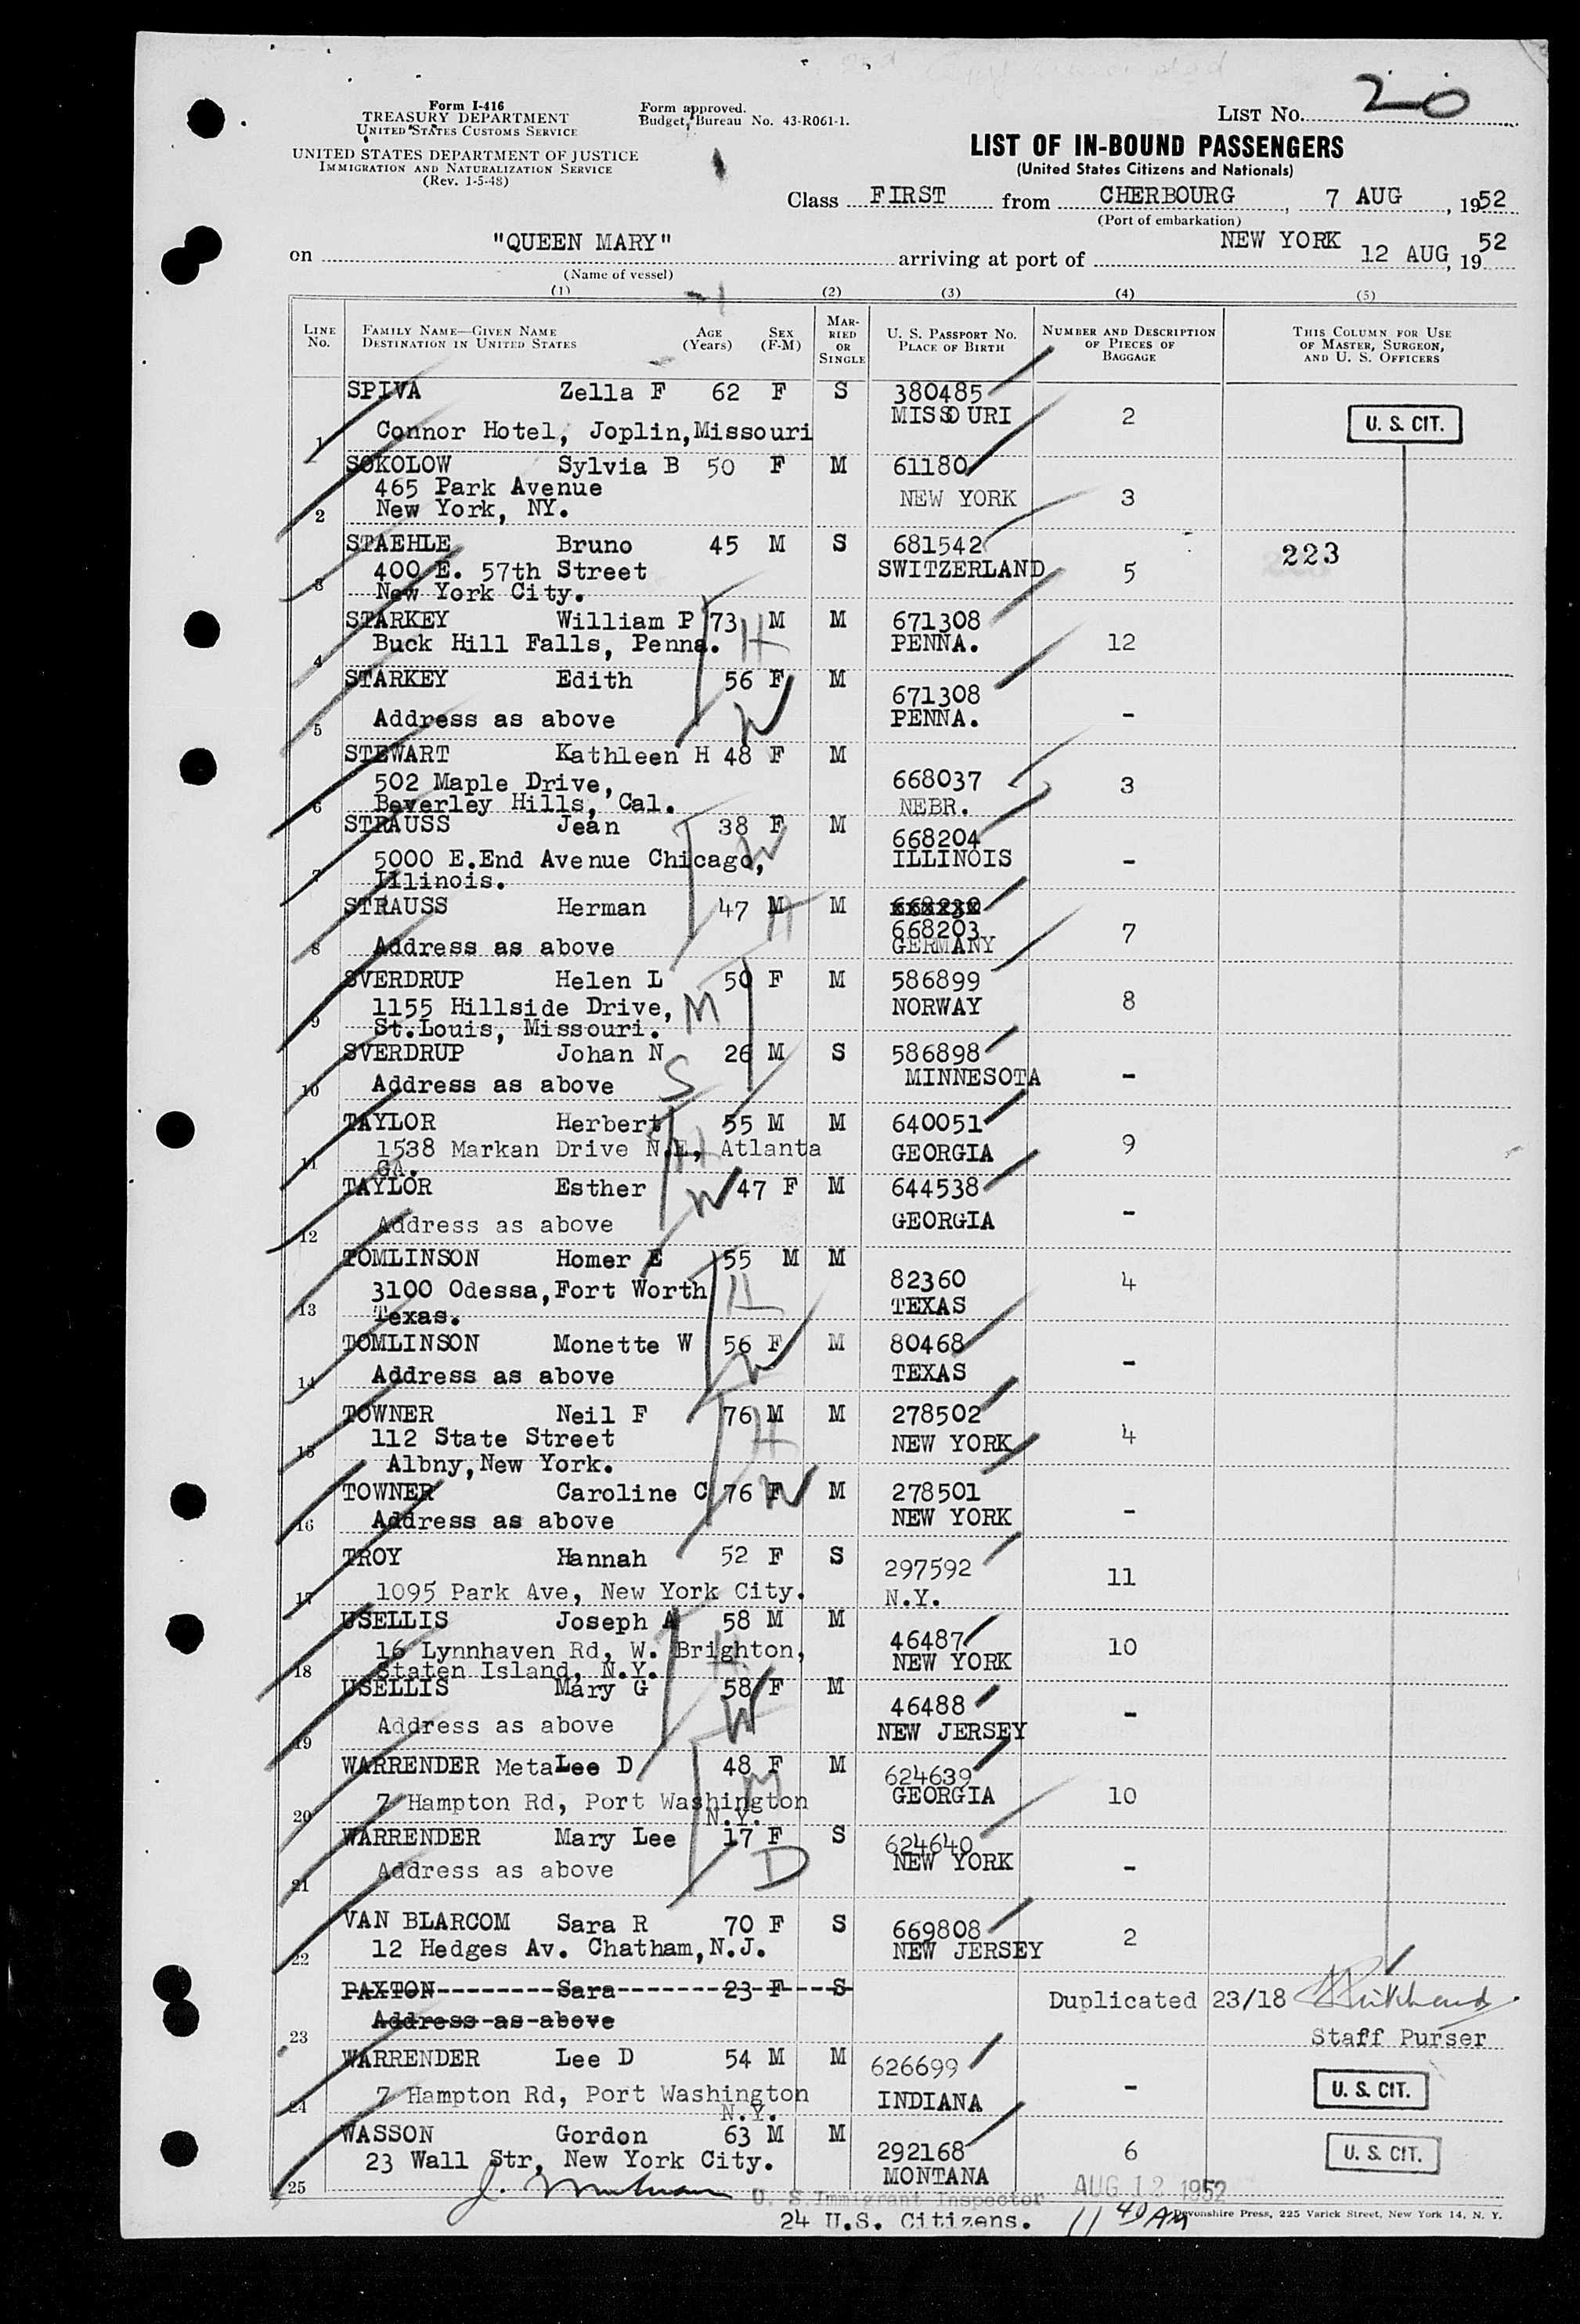 Form I-416
TREASURY DEPARTMENT
UNITED STATES CUSTOMS SERVICE
UNITED STATES DEPARTMENT OF JUSTICE
IMMIGRATION AND NATURALIZATION SERVICE
(Rev. 1-5-48)
Form approved.
Budget Bureau No. 43-R061-1.
LIST NO. 20
LIST OF IN-BOUND PASSENGERS
(United States Citizens and Nationals)
Class FIRST from CHERBOURG, 7 AUG, 1952
(Port of embarkation)
on "QUEEN MARY" arriving at port of NEW YORK 12 AUG, 1952
(Name of vessel)
(1) (2) (3) (4) (5)
LINE No. FAMILY NAME—GIVEN NAME DESTINATION IN UNITED STATES AGE (Years) SEX (F-M) MARRIED OR SINGLE U. S. PASSPORT NO. PLACE OF BIRTH NUMBER AND DESCRIPTION OF PIECES OF BAGGAGE THIS COLUMN FOR USE OF MASTER, SURGEON, AND U. S. OFFICERS
SPIVA Zella F 62 F S 380485
MISSOURI 2 U. S. CIT.
1 Connor Hotel, Joplin,Missouri
SOKOLOW Sylvia B 50 F M 61180
465 Park Avenue NEW YORK 3
2 New York, NY.
STAEHLE Bruno 45 M S 681542 223
400 E. 57th Street SWITZERLAND 5
3 New York City.
STARKEY William P 73 M M 671308
4 Buck Hill Falls, Penna. H PENNA. 12
STARKEY Edith 56 F M 671308
5 Address as above W PENNA. -
STEWART Kathleen H 48 F M
502 Maple Drive, 668037 3
6 Beverley Hills, Cal. NEBR.
STRAUSS Jean 38 F M 668204
5000 E.End Avenue Chicago, W ILLINOIS -
7 Illinois.
STRAUSS Herman 47 M M H
668203 7
8 Address as above GERMANY
SVERDRUP Helen L 50 F M 586899
1155 Hillside Drive, M NORWAY 8
9 St.Louis, Missouri.
SVERDRUP Johan N 26 M S 586898
10 Address as above S MINNESOTA -
TAYLOR Herbert 55 M M 640051
1538 Markan Drive N.E, Atlanta H GEORGIA 9
11 GA.
TAYLOR Esther 47 F M 644538
12 Address as above W GEORGIA -
TOMLINSON Homer E 55 M M
3100 Odessa,Fort Worth H 82360 4
13 Texas. TEXAS
TOMLINSON Monette W 56 F M 80468
14 Address as above W TEXAS -
TOWNER Neil F 76 M M 278502
112 State Street H NEW YORK 4
15 Albny,New York.
TOWNER Caroline C 76 F M 278501 W
16 Address as above NEW YORK -
TROY Hannah 52 F S 297592
17 1095 Park Ave, New York City. N.Y. 11
USELLIS Joseph A 58 M M 46487
16 Lynnhaven Rd, W. Brighton, H NEW YORK 10
18 Staten Island, N.Y.
USELLIS Mary G 58 F M 46488
19 Address as above W NEW JERSEY -
WARRENDER MetaLee D 48 F M 624639
20 7 Hampton Rd, Port Washington M GEORGIA 10
N.Y.
WARRENDER Mary Lee 17 F S 624640
21 Address as above D NEW YORK -
VAN BLARCOM Sara R 70 F S 669808
22 12 Hedges Av. Chatham,N.J. NEW JERSEY 2
PAXTON Sara 23 F S Duplicated 23/18
23 Address as above Staff Purser
WARRENDER Lee D 54 M M 626699
24 7 Hampton Rd, Port Washington INDIANA - U. S. CIT.
N.Y.
WASSON Gordon 63 M M 292168
23 Wall Str, New York City. MONTANA 6 U. S. CIT.
25
U. S. Immigrant Inspector AUG 12 1952
24 U.S. Citizens. 11 40 AM
Devonshire Press, 225 Varick Street, New York 14, N. Y.